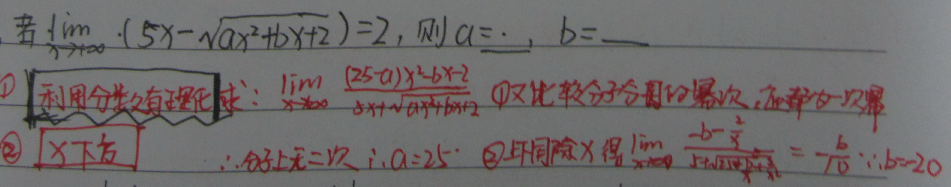 若 lim x→+∞ (5x-√(ax²+bx+2))=2, 则a=__, b=__
① 利用分母有理化 求: lim x→∞ ((25-a)x²-bx-2)/(5x+√(ax²+bx+2)) ①又比较分子分母的幂次,
② x下方 ∴分子上无二次 ∴a=25 ②上下同除x得 lim x→∞ (-b-2/x)/ = -b/10 ∴b=-20